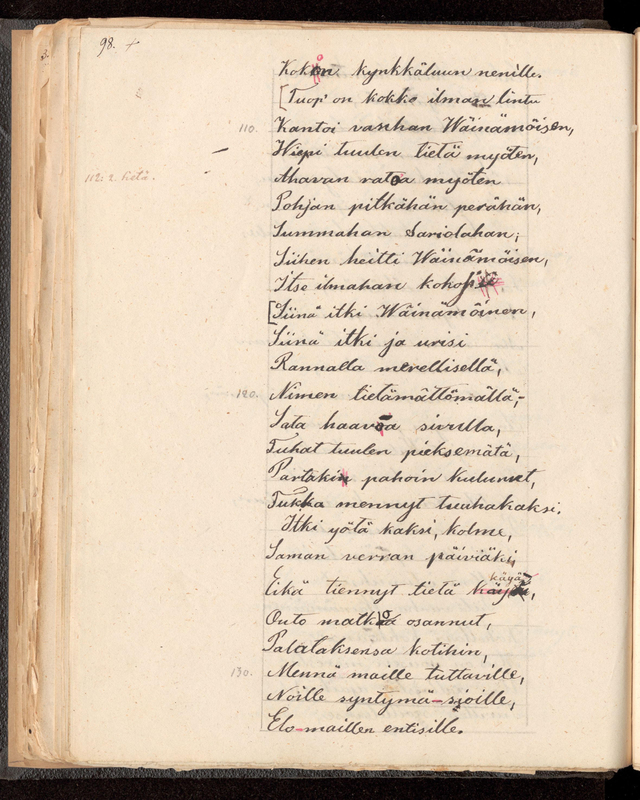 98. +
Kokon kynkkäluun nenille.
[Tuop' on kokko ilman lintu
110. Kantoi vanhan Wäinämöisen,
Wiepi tuulen tietä myöten,
112: 2. hetä.
Ahavan ratoa myöten
Pohjan pitkähän perähän,
Summahan Sariolahan;
Siihen heitti Wäinämöisen,
Itse ilmahan kohosi
[Siinä itki Wäinämöinen,
Siinä itki ja urisi
Rannalla merellisellä,
120. Nimen tietämättömällä,-
Sata haavoa sivulla,
Tuhat tuulen pieksemätä,
Partakin pahoin kulunut,
Tukka mennyt tuuhakaksi.
Itki yötä kaksi, kolme,
Saman verran päiviäki,
käyä
Eikä tiennyt tietä käydä,
Outo matkoa osannut,
Palataksensa kotihin,
130. Mennä maille tuttaville,
Noille syntymä-sioille,
Elo-maillen entisille.